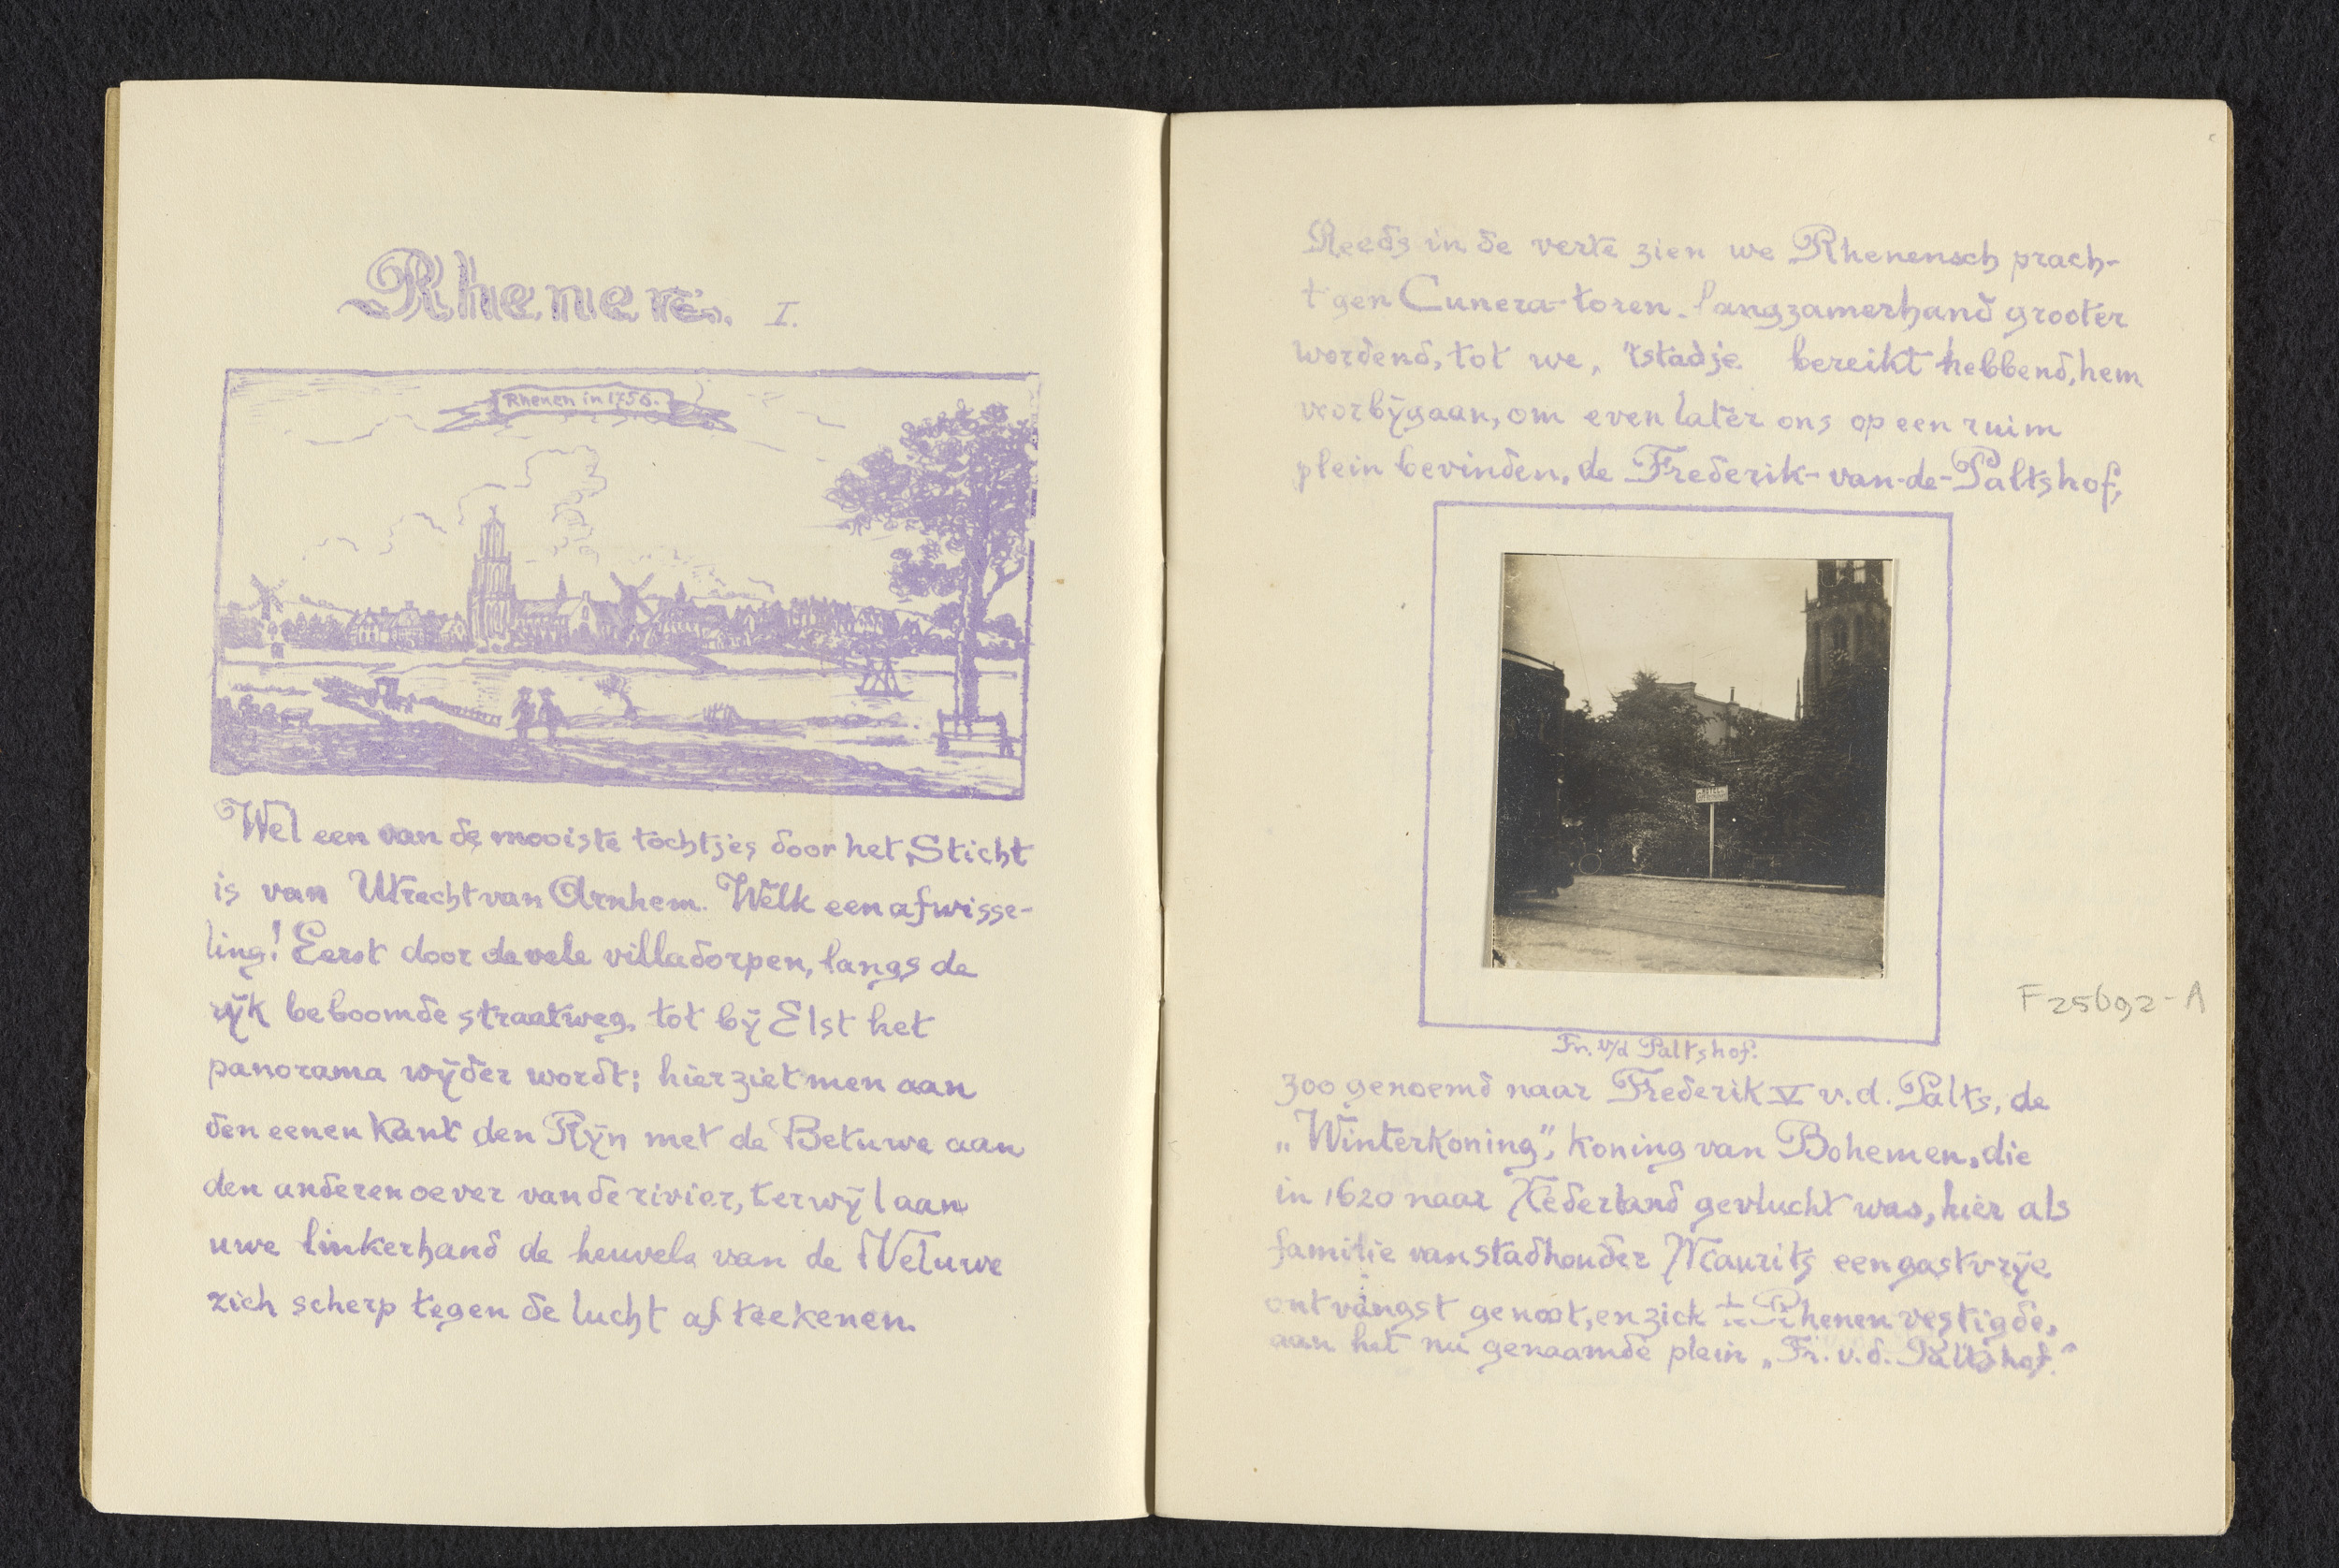 Rhenen. I.
Rhenen in 1750.
Wel een van de mooiste tochtjes door het Sticht
is van Utrecht van Arnhem. Welk een afwisse-
ling! Eerst door de vele villadorpen, langs de
rijk beboomde straatweg, tot bij Elst het
panorama wijder wordt; hier ziet men aan
den eenen Kant den Rijn met de Betuwe aan
den anderen oever van de rivier, terwijl aan
uwe linkerhand de heuvels van de Veluwe
zich scherp tegen de lucht af teekenen.
Reeds in de verte zien we Rhenensch prach-
t'gen Cunera-toren. langzamerhand grooter
wordend, tot we, 't stadje bereikt hebbend, hem
voorbijgaan, om even later ons op een ruim
plein bevinden, de Frederik-van-de-Paltshof,
HOTEL
Fr. v/d Paltshof.
zoo genoemd naar Frederik V v.d. Palts, de
„Winterkoning”, koning van Bohemen, die
in 1620 naar Nederland gevlucht was, hier als
familie van stadhouder Maurits een gastvrije
ontvangst genoot, en zich te Rhenen vestigde,
aan het nu genaamde plein „Fr. v. d. Paltshof.”
F 25692-A